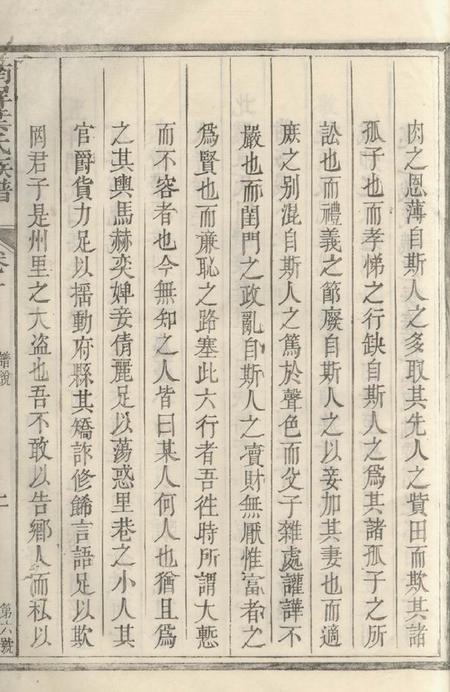 肉之恩薄自斯人之多取其先人之貲田而欺其諸
孤子也而孝悌之行缺自斯人之爲其諸孤子之所
訟也而禮義之節廢自斯人之以妾加其妻也而適
庶之别混自斯人之篤於聲色而父子雜處讙譁不
嚴也而閨門之政亂自斯人之瀆財無厭惟富者之
爲賢也而亷恥之路塞此六行者吾徃時所謂大慝
而不容者也今無知之人皆曰某人何人也猶且爲
之其輿馬赫奕婢妾倩麗足以蕩惑里巷之小人其
官爵貨力足以揺動府縣其矯詐修餙言語足以欺
罔君子是州里之大盗也吾不敢以告鄉人而私以
氏族譜
卷
譜說
二
第六號